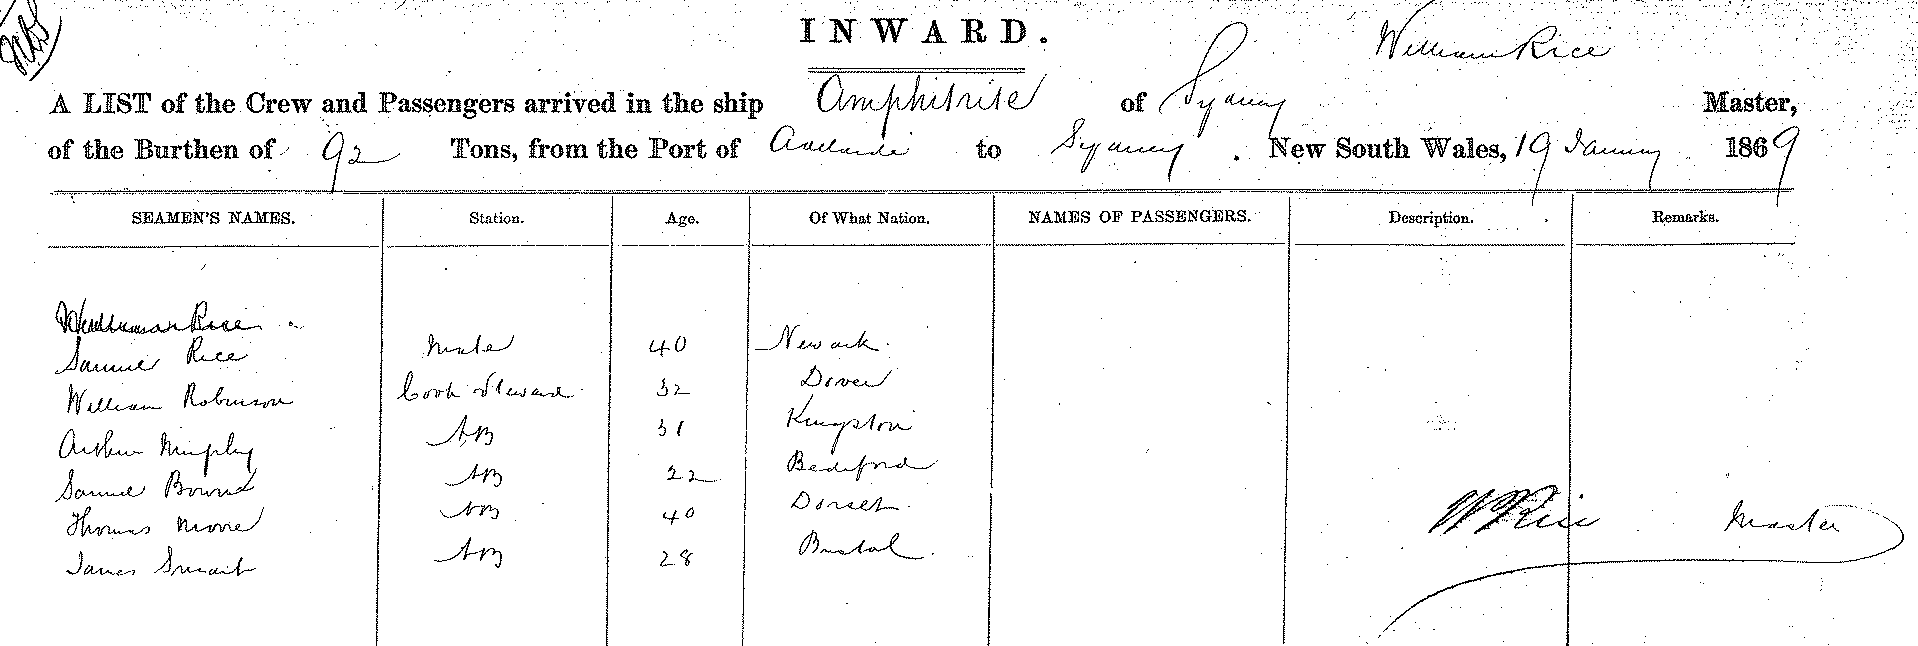 INWARD.
William Rice
A LIST of the Crew and Passengers arrived in the ship Amphitrite of Sydney Master,
of the Burthen of 92 Tons, from the Port of Adelaide to Sydney. New South Wales, 19 January 1869
SEAMEN'S NAMES. Station. Age. Of What Nation. NAMES OF PASSENGERS. Description. Remarks.
William Rice
Samuel Rice Mate 40 Newark
William Robinson Cook & Steward 32 Dover
Arthur Murphy AB 31 Kingston
Samuel AB 22 Bedeford
Thomas Moore AB 40 Dorset
James AB 28 Bristol
W Rice Master